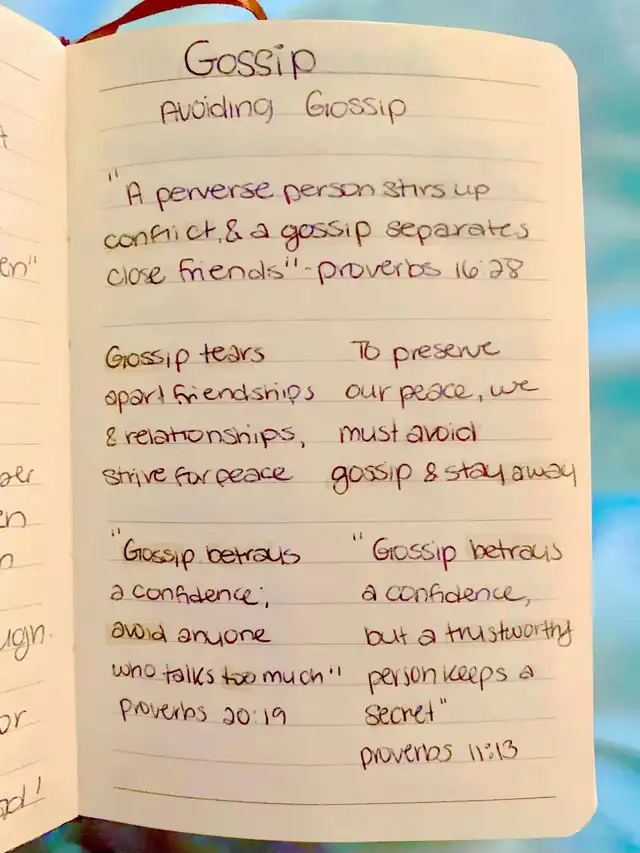 Gossip
Avoiding Gossip
"A perverse person stirs up
conflict, & a gossip separates
close friends" - proverbs 16:28
Gossip tears
apart friendships
& relationships,
strive for peace
To preserve
our peace, we
must avoid
gossip & stay away
"Gossip betrays
a confidence;
avoid anyone
who talks too much"
proverbs 20:19
"Gossip betrays
a confidence,
but a trustworthy
person keeps a
secret"
proverbs 11:13